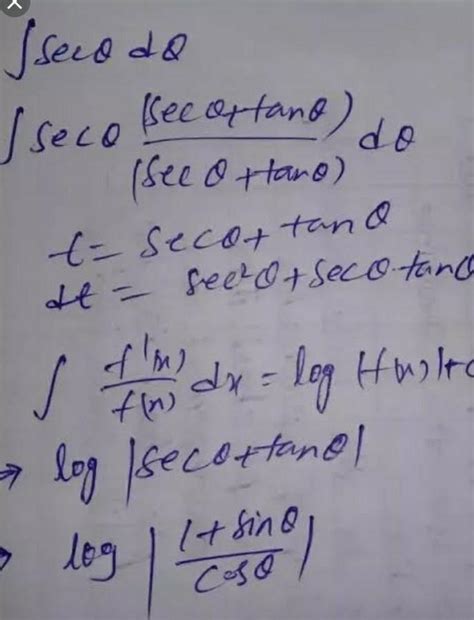 ∫ secθ dθ
∫ secθ (secθ+tanθ)/(secθ+tanθ) dθ
t = secθ + tanθ
dt = sec²θ + secθ·tanθ
∫ f'(x)/f(x) dx = log |f(x)| + c
⇒ log |secθ+tanθ|
⇒ log |(1+sinθ)/cosθ|